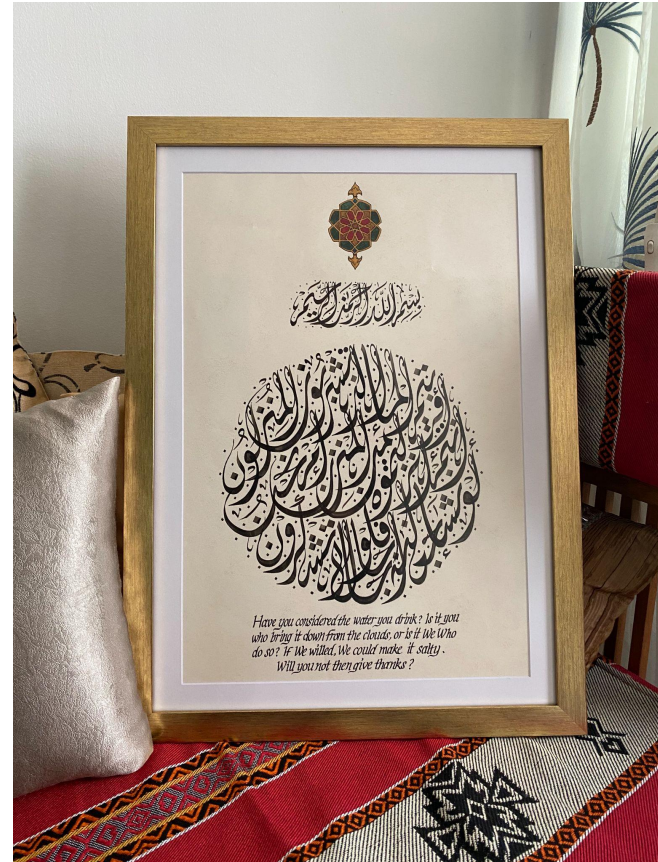 بسم الله الرحمن الرحيم
أفرءيتم الماء الذي تشربون
ءأنتم أنزلتموه من المزن أم نحن المنزلون
لو نشاء جعلناه أجاجا فلولا تشكرون
Have you considered the water you drink? Is it you
who bring it down from the clouds, or is it We Who
do so? If We willed, We could make it salty.
Will you not then give thanks?